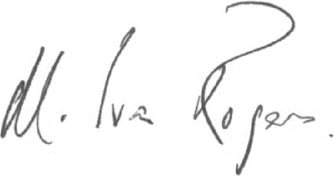 M. Ivan Rogers.